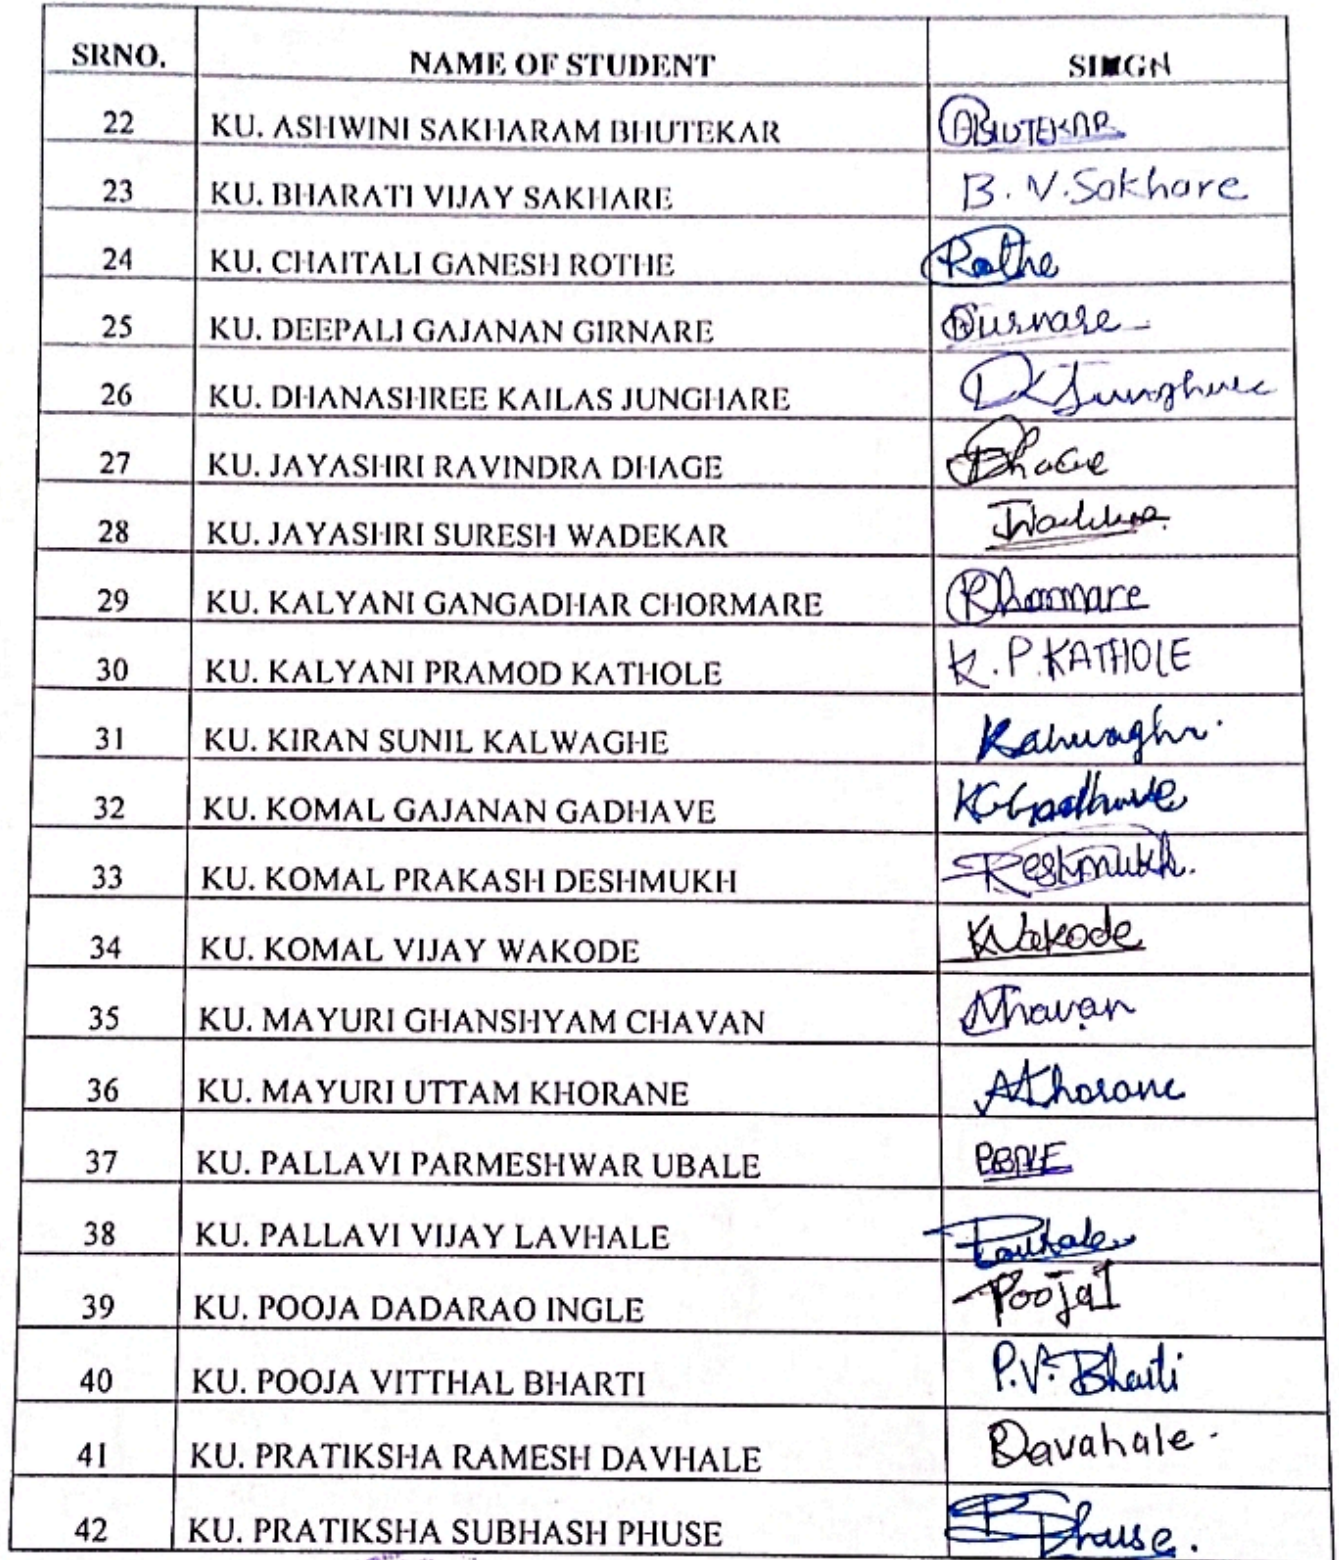 SRNO. NAME OF STUDENT SIGN
22 KU. ASHWINI SAKHARAM BHUTEKAR ABHUTEKAR
23 KU. BHARATI VIJAY SAKHARE B. V. Sakhare
24 KU. CHAITALI GANESH ROTHE Rothe
25 KU. DEEPALI GAJANAN GIRNARE
26 KU. DHANASHREE KAILAS JUNGHARE DKJunghare
27 KU. JAYASHRI RAVINDRA DHAGE Dhage
28 KU. JAYASHRI SURESH WADEKAR
29 KU. KALYANI GANGADHAR CHORMARE
30 KU. KALYANI PRAMOD KATHOLE K. P. KATHOLE
31 KU. KIRAN SUNIL KALWAGHE
32 KU. KOMAL GAJANAN GADHAVE KGGadhave
33 KU. KOMAL PRAKASH DESHMUKH
34 KU. KOMAL VIJAY WAKODE KWakode
35 KU. MAYURI GHANSHYAM CHAVAN
36 KU. MAYURI UTTAM KHORANE
37 KU. PALLAVI PARMESHWAR UBALE
38 KU. PALLAVI VIJAY LAVHALE
39 KU. POOJA DADARAO INGLE PoojaI
40 KU. POOJA VITTHAL BHARTI P.V. Bharti
41 KU. PRATIKSHA RAMESH DAVHALE Davahale.
42 KU. PRATIKSHA SUBHASH PHUSE